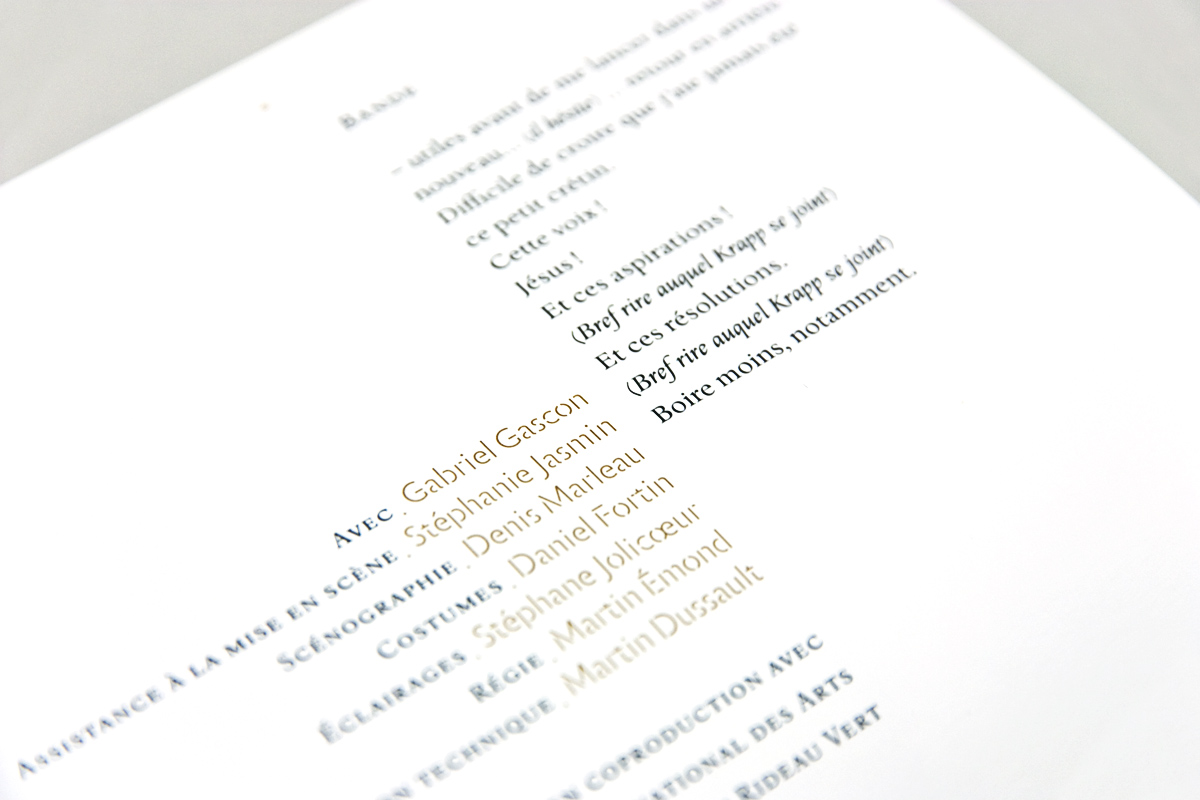 BANDE
– utiles avant de me lancer dans
nouveau... (il hésite) ... retour en arrière
Difficile de croire que j'aie jamais été
ce petit crétin.
Cette voix!
Jésus!
Et ces aspirations!
(Bref rire auquel Krapp se joint)
Et ces résolutions.
(Bref rire auquel Krapp se joint)
Boire moins, notamment.
AVEC . Gabriel Gascon
ASSISTANCE À LA MISE EN SCÈNE . Stéphanie Jasmin
SCÉNOGRAPHIE . Denis Marleau
COSTUMES . Daniel Fortin
ÉCLAIRAGES . Stéphane Jolicœur
RÉGIE . Martin Émond
TECHNIQUE . Martin Dussault
COPRODUCTION AVEC
DES ARTS
RIDEAU VERT